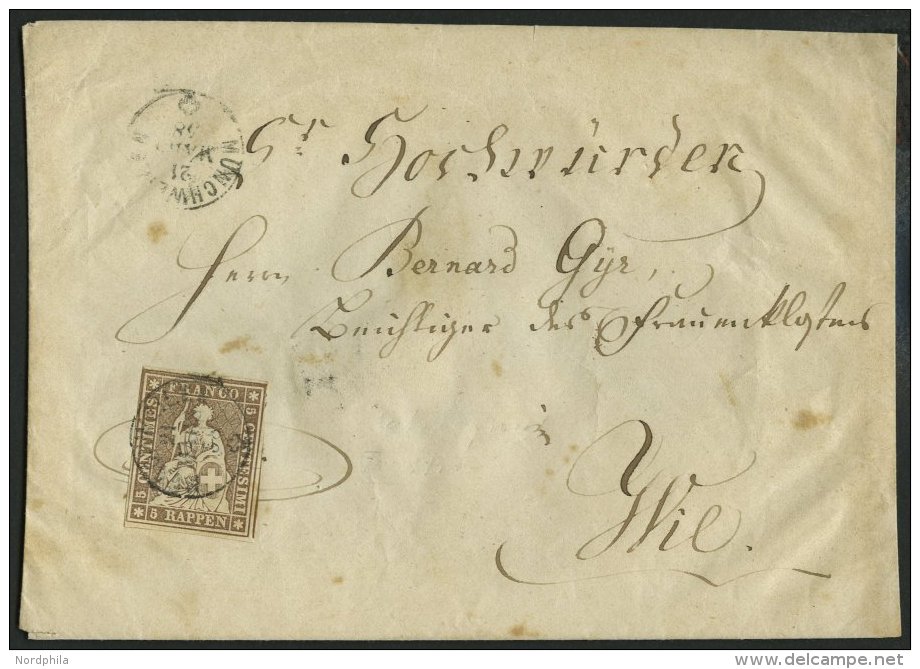 MÜNCHWEILEN
21
Sr Hochwürden
Herrn Bernard Gyr,
Beichtiger des Frauenklosters
in
Wil.
FRANCO
5 CENTIMES
5 CENTESIMI
5 RAPPEN
Nordphila
www.delcampe.net